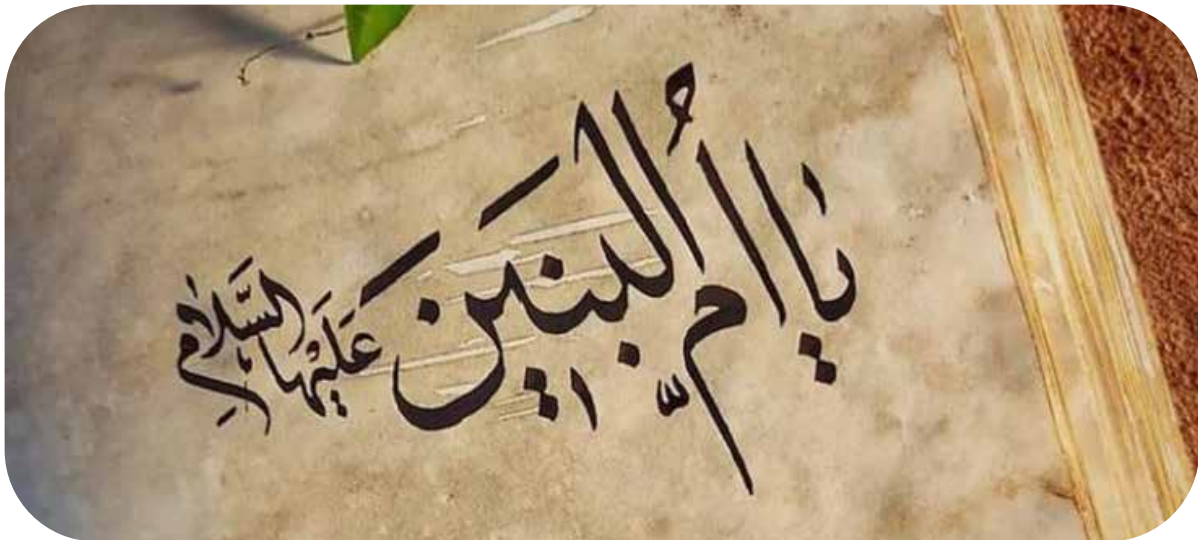 يا أُمَّ البنينَ عَلَيْها السَّلام